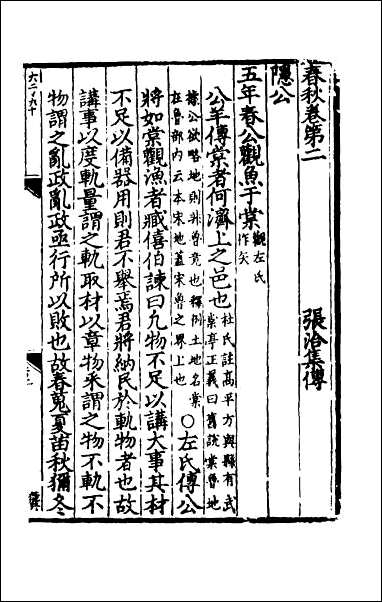 春秋卷第二　張洽集傳
隱公
五年春公觀魚于棠觀左氏作矢
公羊傳棠者何濟上之邑也杜氏註高平方與縣有武棠亭正義曰舊說棠魯地
據公欲略地則非魯竟也釋例土地名棠在魯部內云本宋地蓋宋魯之界上也〇左氏傳公
將如棠觀漁者臧僖伯諫曰凡物不足以講大事其材
不足以備器用則君不舉焉君將納民於軌物者也故
講事以度軌量謂之軌取材以章物采謂之物不軌不
物謂之亂政亂政亟行所以敗也故春蒐夏苗秋獮冬